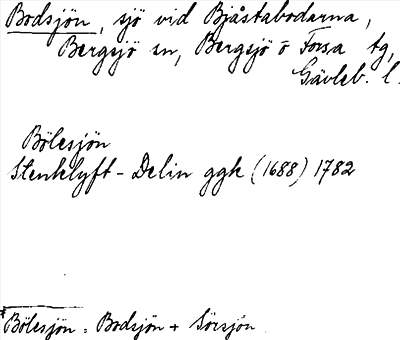 Bodsjön, sjö vid Bjåstabodarna,
Bergsjö sn, Bergsjö o Forsa tg,
Gävleb. l.
Bölesjön
Stenklyft - Delin ggk (1688) 1782
*Bölesjön = Bodsjön + Sörsjön